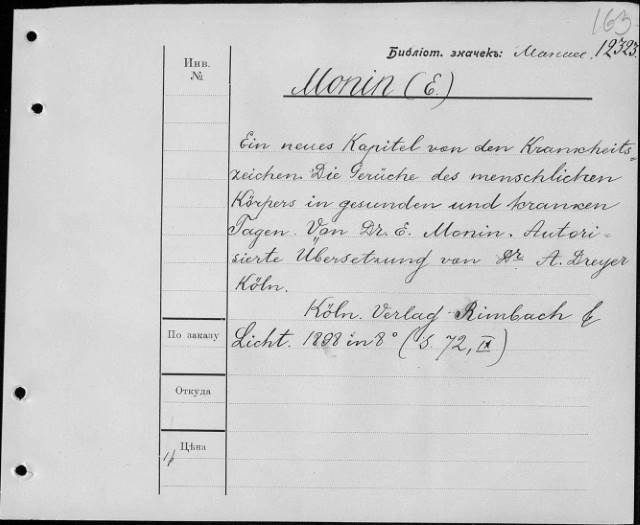 163
Библіот. значекъ: 12323
Инв.
№
Monin (E.)
Ein neues Kapitel von den Krankheits-
zeichen. Die Gerüche des menschlichen
Körpers in gesunden und kranken
Tagen. Von Dr. E. Monin. Autori-
sierte Übersetzung von Dr. A. Dreyer
Köln.
Köln. Verlag Rimbach &
Licht. 1898 in 8° (S. 72, IX)
По заказу
Откуда
Цѣна